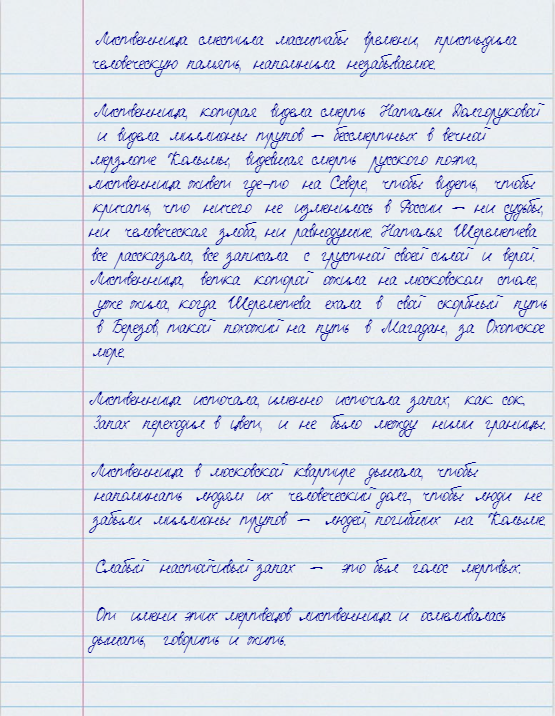 Лиственница сместила масштабы времени, пристыдила
человеческую память, напомнила незабываемое.
Лиственница, которая видела смерть Натальи Долгоруковой
и видела миллионы трупов – бессмертных в вечной
мерзлоте Колымы, видевшая смерть русского поэта,
лиственница живет где-то на Севере, чтобы видеть, чтобы
кричать, что ничего не изменилось в России – ни судьбы,
ни человеческая злоба, ни равнодушие. Наталья Шереметева
все рассказала, все записала с грустной своей силой и верой.
Лиственница, ветка которой ожила на московском столе,
уже жила, когда Шереметева ехала в свой скорбный путь
в Березов, такой похожий на путь в Магадан, за Охотское
море.
Лиственница источала, именно источала запах, как сок.
Запах переходил в цвет, и не было между ними границы.
Лиственница в московской квартире дышала, чтобы
напоминать людям их человеческий долг, чтобы люди не
забыли миллионы трупов – людей, погибших на Колыме.
Слабый настойчивый запах – это был голос мертвых.
От имени этих мертвецов лиственница и осмеливалась
дышать, говорить и жить.